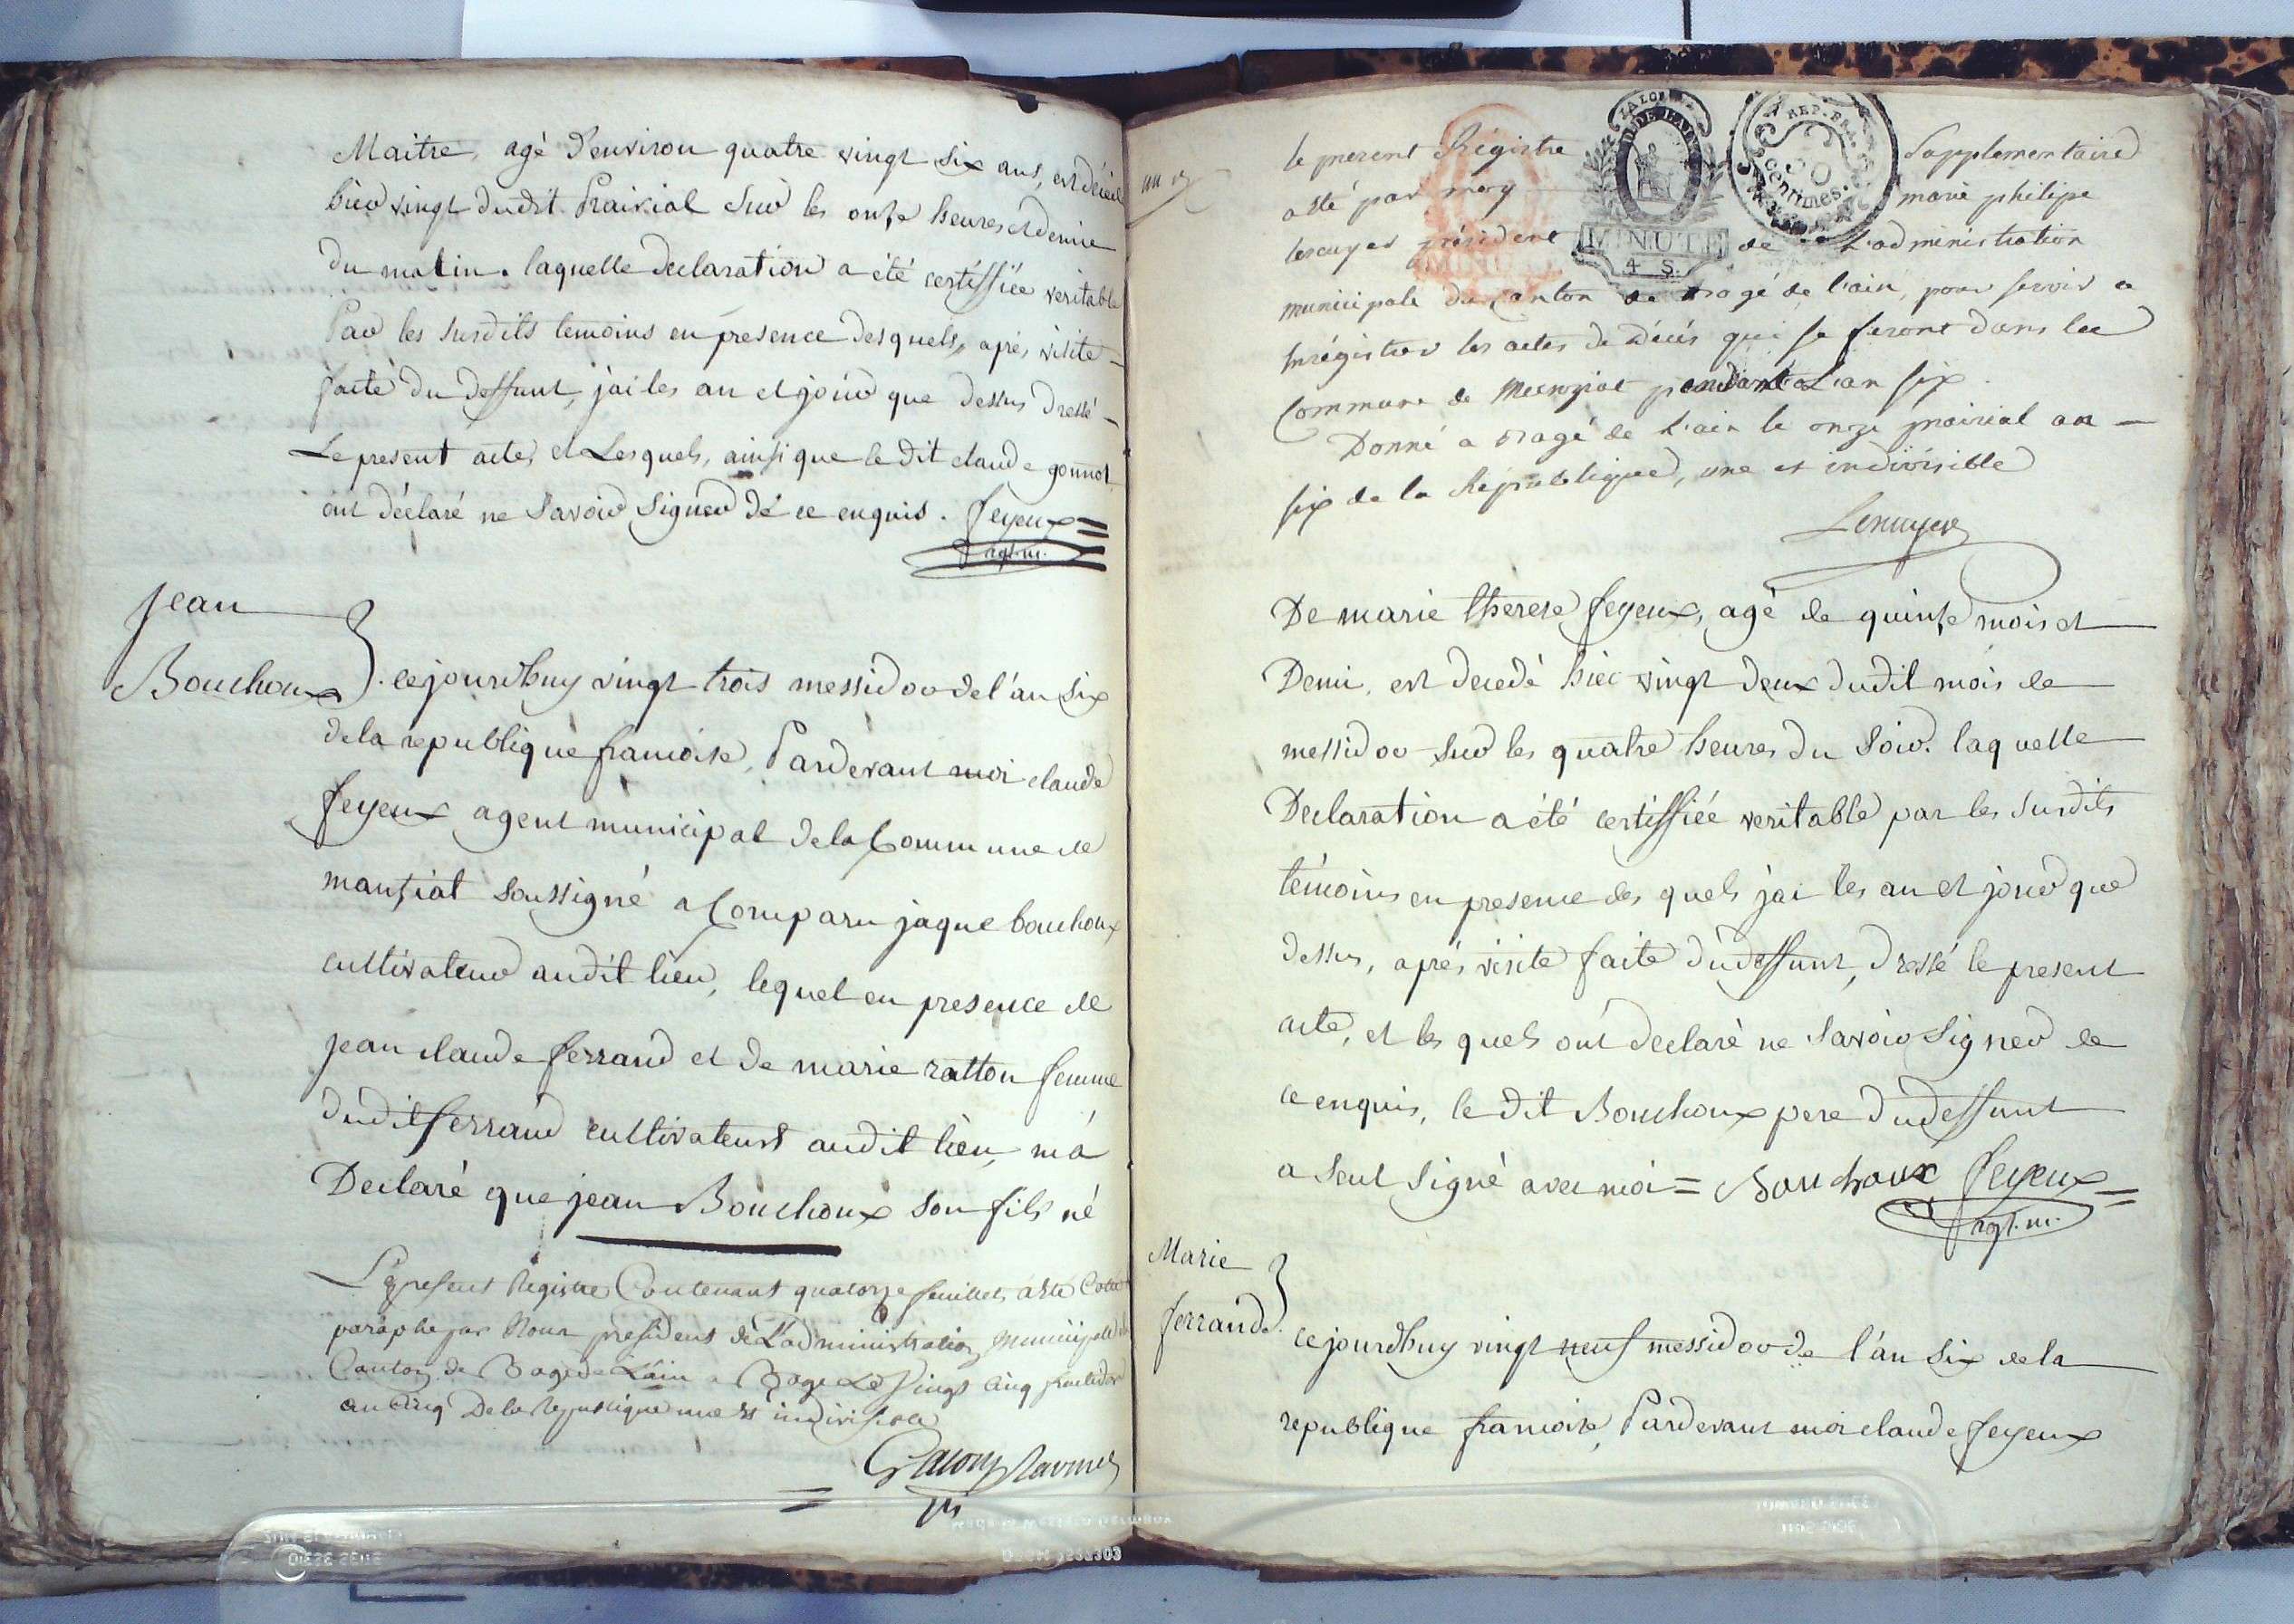 Maitre, agé d'environ quatre vingt six ans, est décédé
hier vingt dudit Prairial sur les onze heures et demie
du matin. laquelle declaration a été certiffiée veritable
Par les susdits temoins en presence desquels, aprés visite
faite du deffunt, j'ai les an et jour que dessus dressé
Le present acte, et Lesquels, ainsi que le dit claude gonnot
ont déclaré ne Savoir Signer de ce enquis. feyeux
agt. m.
Jean
Bouchoux
cejourd'huy vingt trois messidor de l'an six
de la republique francoise, Pardevant moi claude
feyeux agent municipal de la Commune de
manziat soussigné a Comparu jaque bouchoux
cultivateur audit lieu, lequel en presence de
jean claude ferrand et de marie ratton femme
dudit ferrand cultivateurs audit lieu, m'a
Declaré que jean Bouchoux son fils né
Le present Registre Contenant quatorze feuillets, a été Cotté
paraphé par Nous president de L'administration Municipale du
Canton de Bagé de L'ain a Bagé Le Vingt Cinq fructidor
an Cinq De la Republique une et indivisible
an 6
le present Régistre Supplementaire
a été par moy marie philipe
lescuyer président de L'administration
municipale du Canton de Bagé de l'ain, pour servir a
enrégistrer les actes de décès qui se feront dans la
Commune de Manziat pendant L'an six.
Donné a Bagé de L'ain le onze prairial an
six de la République, une et indivisible
Lescuyer
REP. FRA.
50
centimes.
MINUTE
4 S.
De marie therese feyeux, agé de quinze mois et
Demi, est decedé hier vingt deux dudit mois de
messidor sur les quatre heures du Soir. laquelle
Declaration a été certiffiée veritable par les susdits
témoins en presence des quels j'ai les an et jour que
dessus, aprés visite faite du deffunt, dressé le present
acte, et les quels ont declaré ne Savoir Signer de
ce enquis, le dit Bouchoux pere du deffunt
a Seul Signé avec moi = Bouchoux feyeux
agt. m.
Marie
ferrand.
cejourd'huy vingt neuf messidor de l'an Six de la
republique francoise, Pardevant moi claude feyeux